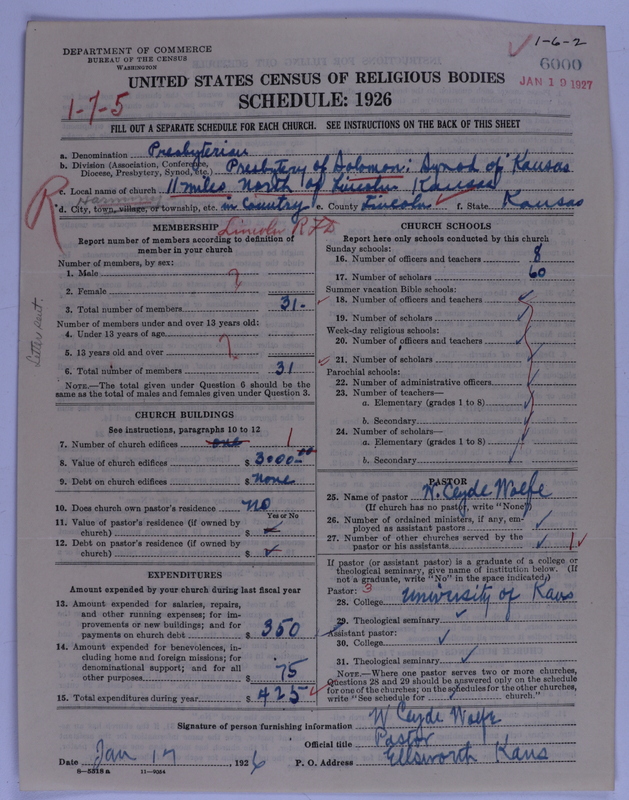 1-6-2
DEPARTMENT OF COMMERCE
BUREAU OF THE CENSUS
WASHINGTON
6000
JAN 19 1927
UNITED STATES CENSUS OF RELIGIOUS BODIES
1-7-5
SCHEDULE: 1926
FILL OUT A SEPARATE SCHEDULE FOR EACH CHURCH. SEE INSTRUCTIONS ON THE BACK OF THIS SHEET
a. Denomination Presbyterian
b. Division (Association, Conference, Diocese, Presbytery, Synod, etc.) Presbytery of Solomon; Synod of Kansas
c. Local name of church 11 miles North of Lincoln Kansas
R
Harmony
d. City, town, village, or township, etc. in Country e. County Lincoln f. State Kansas
Lincoln RFD
Letter sent.
MEMBERSHIP
Report number of members according to definition of member in your church
Number of members, by sex:
1. Male ?
2. Female
3. Total number of members 31-
Number of members under and over 13 years old:
4. Under 13 years of age ?
5. 13 years old and over
6. Total number of members 31
NOTE.—The total given under Question 6 should be the same as the total of males and females given under Question 3.
CHURCH BUILDINGS
See instructions, paragraphs 10 to 12
7. Number of church edifices one 1
8. Value of church edifices $ 3000.00
9. Debt on church edifices $ none
10. Does church own pastor's residence no
Yes or No
11. Value of pastor's residence (if owned by church) $
12. Debt on pastor's residence (if owned by church) $
EXPENDITURES
Amount expended by your church during last fiscal year
13. Amount expended for salaries, repairs, and other running expenses; for improvements or new buildings; and for payments on church debt $ 350
14. Amount expended for benevolences, including home and foreign missions; for denominational support; and for all other purposes 75
15. Total expenditures during year $ 425
CHURCH SCHOOLS
Report here only schools conducted by this church
Sunday schools:
16. Number of officers and teachers 8
17. Number of scholars 60
Summer vacation Bible schools:
18. Number of officers and teachers
19. Number of scholars
Week-day religious schools:
20. Number of officers and teachers
21. Number of scholars
Parochial schools:
22. Number of administrative officers
23. Number of teachers—
a. Elementary (grades 1 to 8)
b. Secondary
24. Number of scholars—
a. Elementary (grades 1 to 8)
b. Secondary
PASTOR
25. Name of pastor W. Clyde Wolfe
(If church has no pastor, write "None")
26. Number of ordained ministers, if any, employed as assistant pastors
27. Number of other churches served by the pastor or his assistants 1
If pastor (or assistant pastor) is a graduate of a college or theological seminary, give name of institution below. (If not a graduate, write "No" in the space indicated.)
Pastor: 3
28. College University of Kans
29. Theological seminary
Assistant pastor:
30. College
31. Theological seminary
NOTE.—Where one pastor serves two or more churches, Questions 28 and 29 should be answered only on the schedule for one of the churches; on the schedules for the other churches, write "See schedule for church."
Signature of person furnishing information W Clyde Wolfe
Official title Pastor
Date Jan 17, 1926 P. O. Address Ellsworth Kans
8—5318a 11—9054